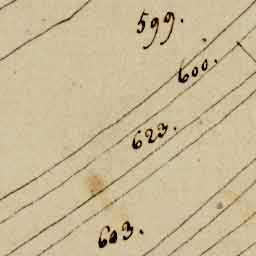 599.
600.
623.
603.